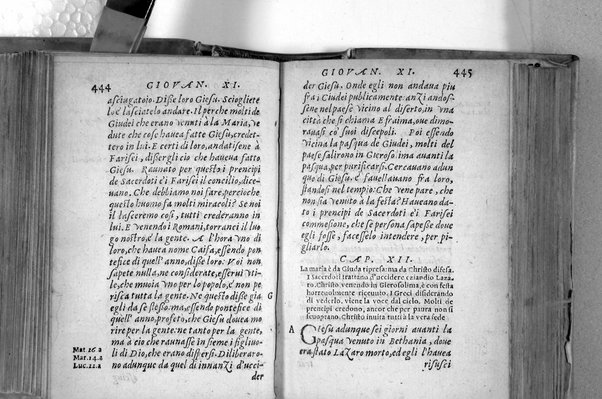 444
GIOVAN. XI.
asciugatoio. Disse loro Giesu. Sciogliete
lo, e lasciatelo andare. Il perche molti de
Giudei che erano venuti a la Maria, ve
dute che cose haueua fatte Giesu, credet-
tero in lui. E certi di loro, andatisene à
Farisei, dissergli cio che haueua fatto
Giesu. Raunato per questo i prencipi
de Sacerdoti e i Farisei il concilio, dice-
uano. Che debbiamo noi fare, percioche
questo huomo fa molti miracoli? Se noi
il lasceremo cosi, tutti crederanno in
lui. E venendo i Romani, torranci il luo
go nostro, e la gente. A l'hora vno di
loro, che haueua nome Caifa, essendo pon
tefice di quell' anno, disse loro. Voi non
sapete nulla, ne considerate, esserui vti-
le, che muoia vno per lo popolo, e non pe
risca tutta la gente. Ne questo disse gia
G
egli da se stesso. ma, essendo pontefice di
quell' anno, profetò, che Giesu doueua mo
rire per la gente. ne tanto per la gente,
Mat 26 a
ma à cio che raunasse in sieme i figliuo-
Mar. 14. a
li di Dio, che erano dispersi. Diliberaro-
Luc. 22. a
no adunque da quel dì innanzi d'ucci-
der
GIOVAN. XI.
445
der Giesu. Onde egli non andaua piu
fra i Giudei publicamente. anzi andos-
sene nel paese vicino al diserto, in vna
città che si chiama Efraima, que dimo-
rauasi co' suoi discepoli. Poi essendo
vicina la pasqua de Giudei, molti del
paese salirono in Gierosolima auanti la
pasqua, per purificarsi. Cercauano adun
que di Giesu, e fauellauano fra loro,
standosi nel tempio. Che vene pare, che
non sia venuto a la festa? Haueano da-
to i prencipi de Sacerdoti e i Farisei
commesione, che se persona sapesse doue
egli fosse, facesselo intendere, per pi-
gliarlo.
CAP. XII.
La maria è da Giuda ripresa. ma da Christo difesa.
I Sacerdoti trattano d'uccidere etiandio Laza-
ro. Christo, venendo in Gierosolima, è con festa
horreuolmente riceuuto. I Greci disiderando
di vederlo, viene la voce dal cielo. Molti de
prencipi credono, ancor che per paura non si
scuoprano. Christo inuita tutti a la vera fede.
A
Giesu adunque sei giorni auanti la
pasqua venuto in Bethania, doue
era stato Lazaro morto, ed egli l'haueua
risusci